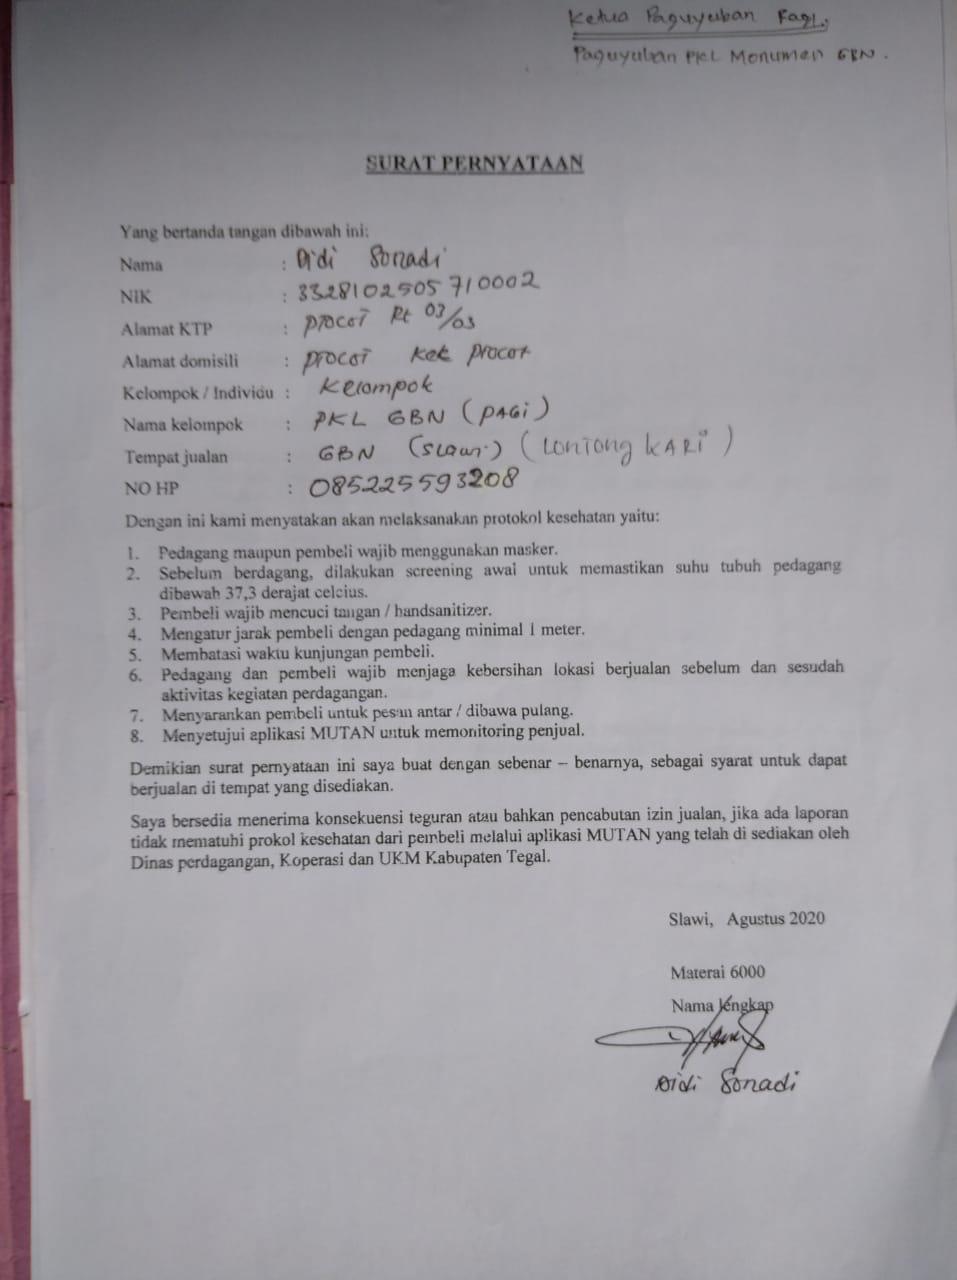 Ketua Paguyuban Pagi.
Paguyuban PKL Monumen GBN.
SURAT PERNYATAAN
Yang bertanda tangan dibawah ini:
Nama : Didi Sonadi
NIK : 3328102505710002
Alamat KTP : Procot Rt 03/03
Alamat domisili : Procot Kel Procot
Kelompok / Individu : Kelompok
Nama kelompok : PKL GBN (PAGi)
Tempat jualan : GBN (Slawi) (Lontong KARi)
NO HP : 085225593208
Dengan ini kami menyatakan akan melaksanakan protokol kesehatan yaitu:
1. Pedagang maupun pembeli wajib menggunakan masker.
2. Sebelum berdagang, dilakukan screening awal untuk memastikan suhu tubuh pedagang
dibawah 37,3 derajat celcius.
3. Pembeli wajib mencuci tangan / handsanitizer.
4. Mengatur jarak pembeli dengan pedagang minimal 1 meter.
5. Membatasi waktu kunjungan pembeli.
6. Pedagang dan pembeli wajib menjaga kebersihan lokasi berjualan sebelum dan sesudah
aktivitas kegiatan perdagangan.
7. Menyarankan pembeli untuk pesan antar / dibawa pulang.
8. Menyetujui aplikasi MUTAN untuk memonitoring penjual.
Demikian surat pernyataan ini saya buat dengan sebenar – benarnya, sebagai syarat untuk dapat
berjualan di tempat yang disediakan.
Saya bersedia menerima konsekuensi teguran atau bahkan pencabutan izin jualan, jika ada laporan
tidak mematuhi prokol kesehatan dari pembeli melalui aplikasi MUTAN yang telah di sediakan oleh
Dinas perdagangan, Koperasi dan UKM Kabupaten Tegal.
Slawi, Agustus 2020
Materai 6000
Nama lengkap
Didi Sonadi